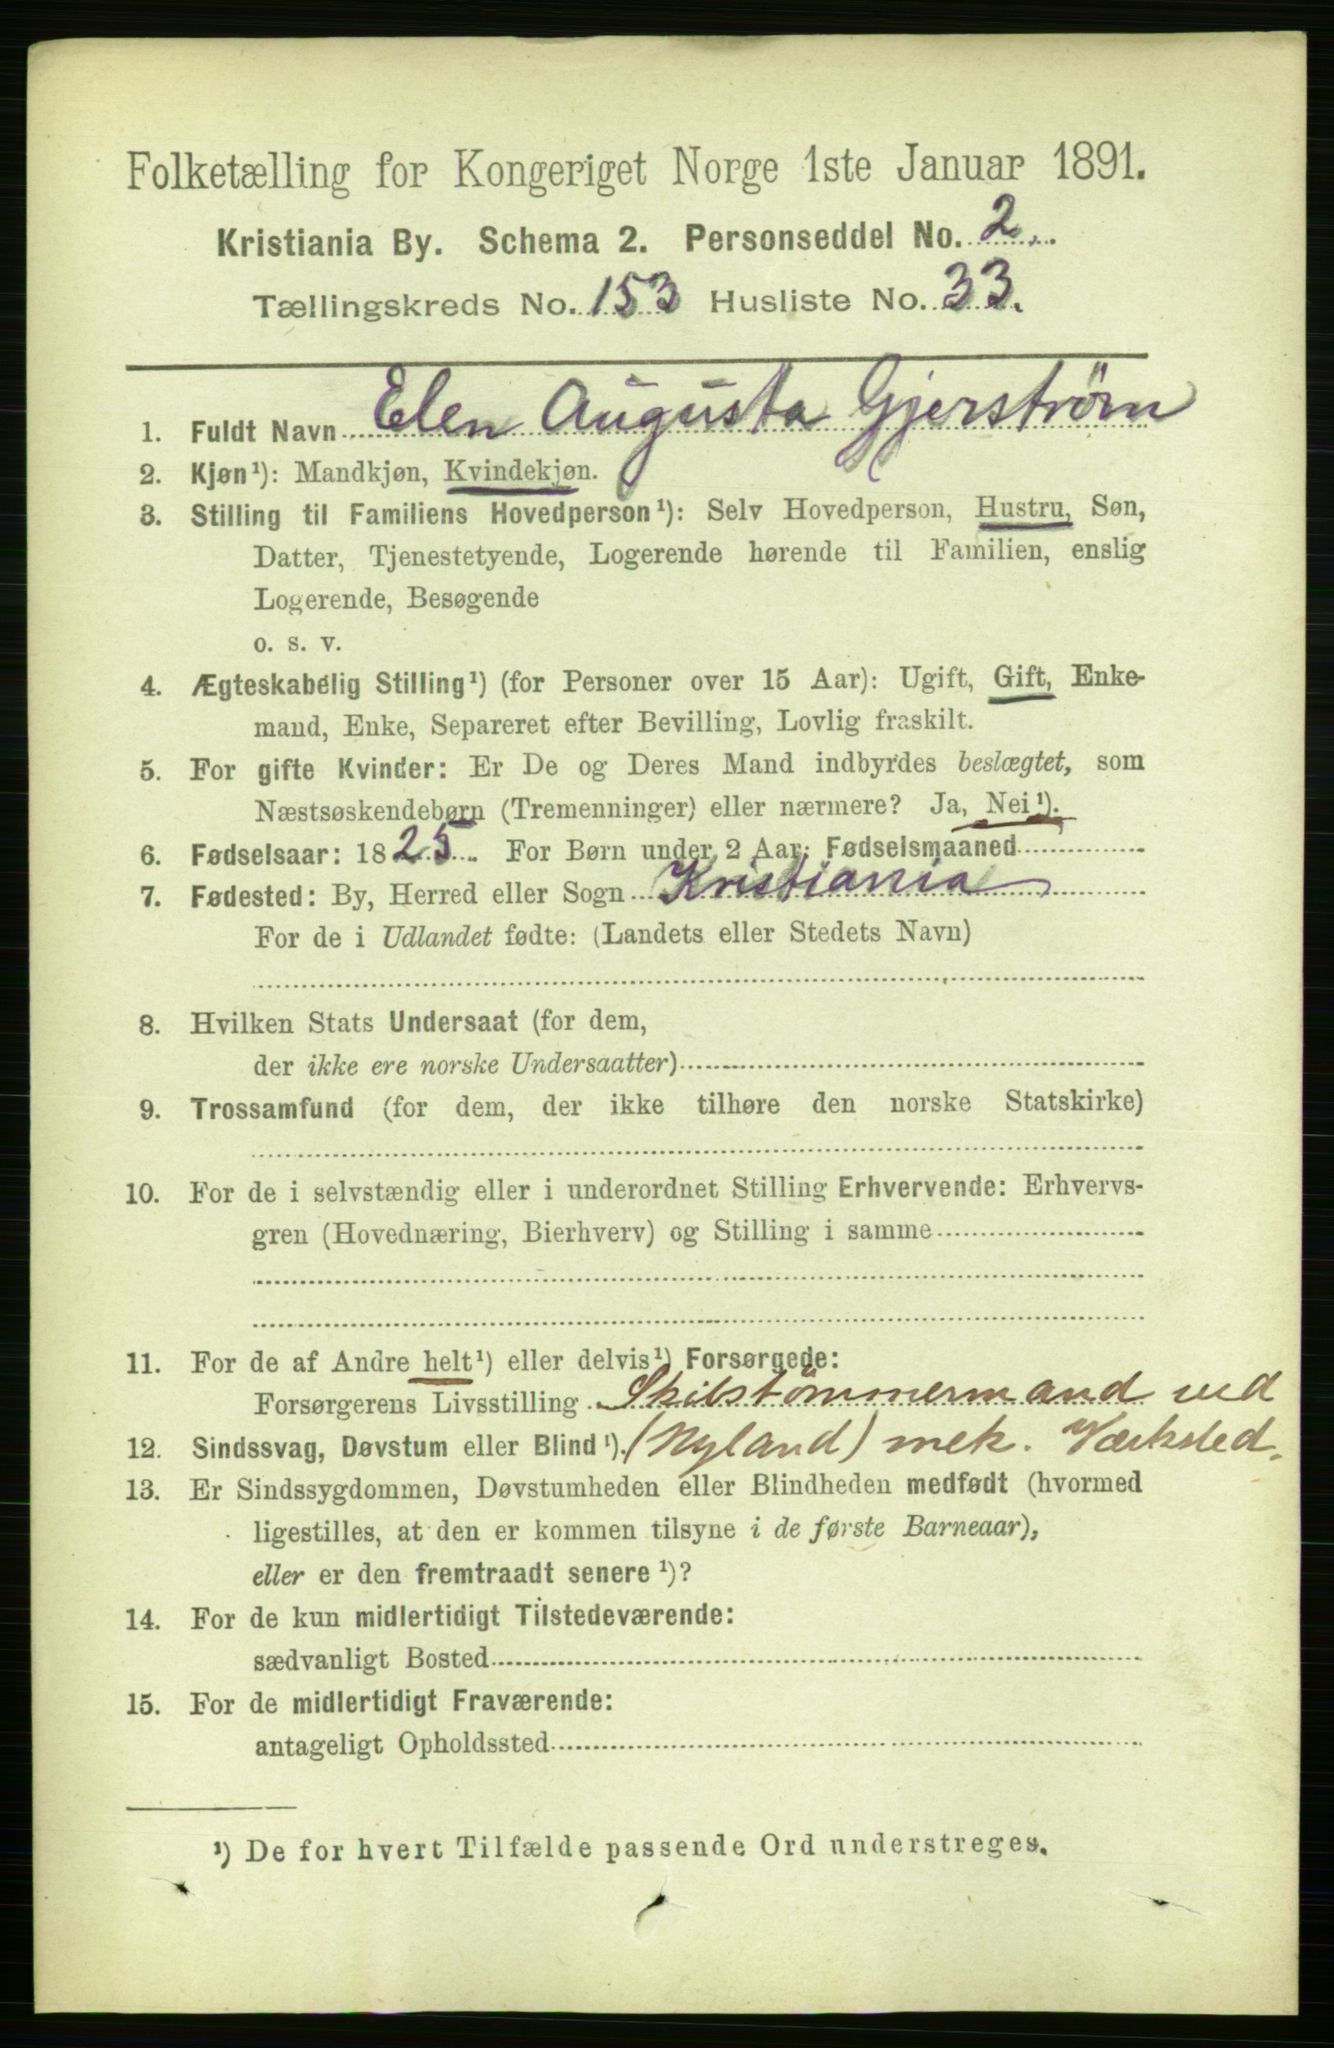 Folketælling for Kongeriget Norge 1ste Januar 1891.
Kristiania By. Schema 2. Personseddel No. 2.
Tællingskreds No. 153 Husliste No. 33.
1. Fuldt Navn Elen Augusta Gjerstrøm
2. Kjøn¹): Mandkjøn, Kvindekjøn.
3. Stilling til Familiens Hovedperson¹): Selv Hovedperson, Hustru, Søn,
Datter, Tjenestetyende, Logerende hørende til Familien, enslig
Logerende, Besøgende
o. s. v.
4. Ægteskabelig Stilling¹) (for Personer over 15 Aar): Ugift, Gift, Enke-
mand, Enke, Separeret efter Bevilling, Lovlig fraskilt.
5. For gifte Kvinder: Er De og Deres Mand indbyrdes beslægtet, som
Næstsøskendebørn (Tremenninger) eller nærmere? Ja, Nei¹).
6. Fødselsaar: 1825. For Børn under 2 Aar: Fødselsmaaned
7. Fødested: By, Herred eller Sogn Kristiania
For de i Udlandet fødte: (Landets eller Stedets Navn)
8. Hvilken Stats Undersaat (for dem,
der ikke ere norske Undersaatter)
9. Trossamfund (for dem, der ikke tilhøre den norske Statskirke)
10. For de i selvstændig eller i underordnet Stilling Erhvervende: Erhvervs-
gren (Hovednæring, Bierhverv) og Stilling i samme
11. For de af Andre helt¹) eller delvis¹) Forsørgede:
Forsørgerens Livsstilling Skibstømmermand ved
12. Sindssvag, Døvstum eller Blind¹). (Nyland) mek. Værksted.
13. Er Sindssygdommen, Døvstumheden eller Blindheden medfødt (hvormed
ligestilles, at den er kommen tilsyne i de første Barneaar),
eller er den fremtraadt senere¹)?
14. For de kun midlertidigt Tilstedeværende:
sædvanligt Bosted
15. For de midlertidigt Fraværende:
antageligt Opholdssted
¹) De for hvert Tilfælde passende Ord understreges.